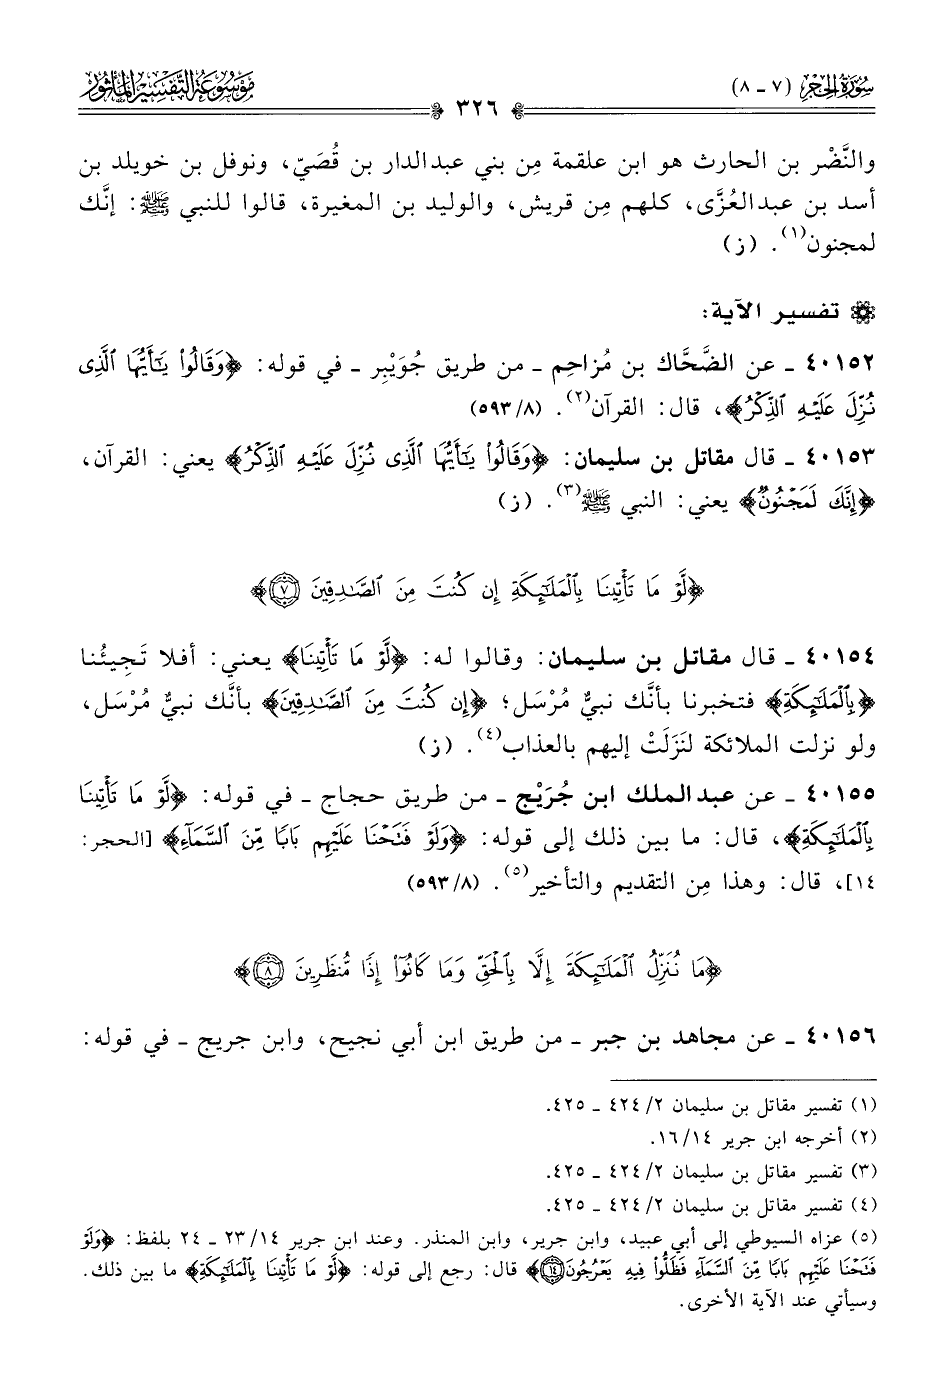 سُورَةُ الحِجْرِ (٧ - ٨)
٣٢٦
مَوْسُوعَةُ التَّفْسِيرِ المَأْثُور
والنَّضْر بن الحارث هو ابن علقمة مِن بني عبدالدار بن قُصَيّ، ونوفل بن خويلد بن
أسد بن عبدالعُزَّى، كلهم مِن قريش، والوليد بن المغيرة، قالوا للنبي ﷺ: إنَّك
لمجنون(١). (ز)
تفسير الآية:
٤٠١٥٢ ـ عن الضَّحَّاك بن مُزاحِم ـ من طريق جُوَيْبِر ـ في قوله: ﴿وَقَالُوا۟ يَٰٓأَيُّهَا ٱلَّذِى
نُزِّلَ عَلَيْهِ ٱلذِّكْرُ﴾، قال: القرآن(٢). (٥٩٣/٨)
٤٠١٥٣ ـ قال مقاتل بن سليمان: ﴿وَقَالُوا۟ يَٰٓأَيُّهَا ٱلَّذِى نُزِّلَ عَلَيْهِ ٱلذِّكْرُ﴾ يعني: القرآن،
﴿إِنَّكَ لَمَجْنُونٌ﴾ يعني: النبي ﷺ(٣). (ز)
﴿لَّوْ مَا تَأْتِينَا بِٱلْمَلَٰٓئِكَةِ إِن كُنتَ مِنَ ٱلصَّٰدِقِينَ ٧﴾
٤٠١٥٤ ـ قال مقاتل بن سليمان: وقالوا له: ﴿لَّوْ مَا تَأْتِينَا﴾ يعني: أفلا تَجِيئُنا
﴿بِٱلْمَلَٰٓئِكَةِ﴾ فتخبرنا بأنَّك نبيٌّ مُرْسَل؛ ﴿إِن كُنتَ مِنَ ٱلصَّٰدِقِينَ﴾ بأنَّك نبيٌّ مُرْسَل،
ولو نزلت الملائكة لنَزَلَتْ إليهم بالعذاب(٤). (ز)
٤٠١٥٥ ـ عن عبدالملك ابن جُرَيْج ـ من طريق حجاج ـ في قوله: ﴿لَّوْ مَا تَأْتِينَا
بِٱلْمَلَٰٓئِكَةِ﴾، قال: ما بين ذلك إلى قوله: ﴿وَلَوْ فَتَحْنَا عَلَيْهِم بَابًا مِّنَ ٱلسَّمَآءِ﴾ [الحجر:
١٤]، قال: وهذا مِن التقديم والتأخير(٥). (٥٩٣/٨)
﴿مَا نُنَزِّلُ ٱلْمَلَٰٓئِكَةَ إِلَّا بِٱلْحَقِّ وَمَا كَانُوٓا۟ إِذًا مُّنظَرِينَ ٨﴾
٤٠١٥٦ ـ عن مجاهد بن جبر ـ من طريق ابن أبي نجيح، وابن جريج ـ في قوله:
(١) تفسير مقاتل بن سليمان ٤٢٤/٢ ـ ٤٢٥.
(٢) أخرجه ابن جرير ١٦/١٤.
(٣) تفسير مقاتل بن سليمان ٤٢٤/٢ ـ ٤٢٥.
(٤) تفسير مقاتل بن سليمان ٤٢٤/٢ ـ ٤٢٥.
(٥) عزاه السيوطي إلى أبي عبيد، وابن جرير، وابن المنذر. وعند ابن جرير ٢٣/١٤ ـ ٢٤ بلفظ: ﴿وَلَوْ
فَتَحْنَا عَلَيْهِم بَابًا مِّنَ ٱلسَّمَآءِ فَظَلُّوا۟ فِيهِ يَعْرُجُونَ ١٤﴾ قال: رجع إلى قوله: ﴿لَّوْ مَا تَأْتِينَا بِٱلْمَلَٰٓئِكَةِ﴾ ما بين ذلك.
وسيأتي عند الآية الأخرى.